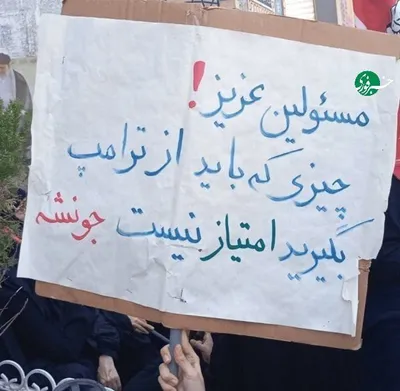 خبرفوری
مسئولین عزیز!
چیزی که باید از ترامپ
بگیرید امتیاز نیست جونشه